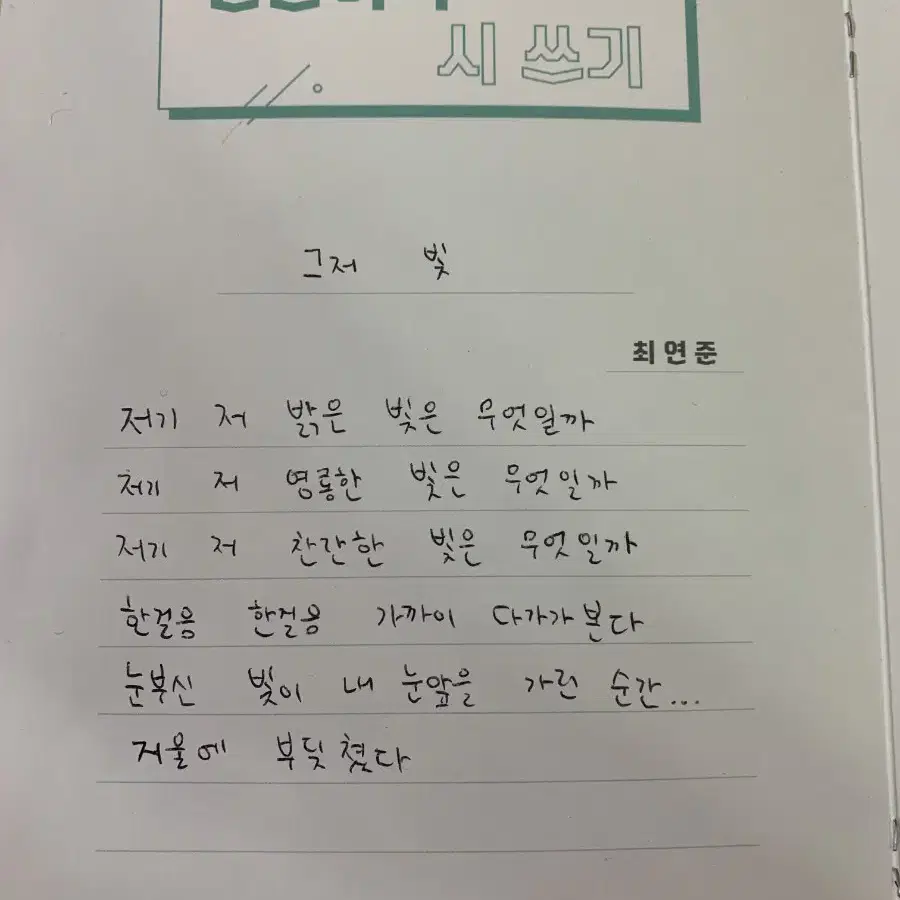 시 쓰기
그저 빛
최연준
저기 저 밝은 빛은 무엇일까
저기 저 영롱한 빛은 무엇일까
저기 저 찬란한 빛은 무엇일까
한걸음 한걸음 가까이 다가가 본다
눈부신 빛이 내 눈앞을 가린 순간...
거울에 부딪쳤다